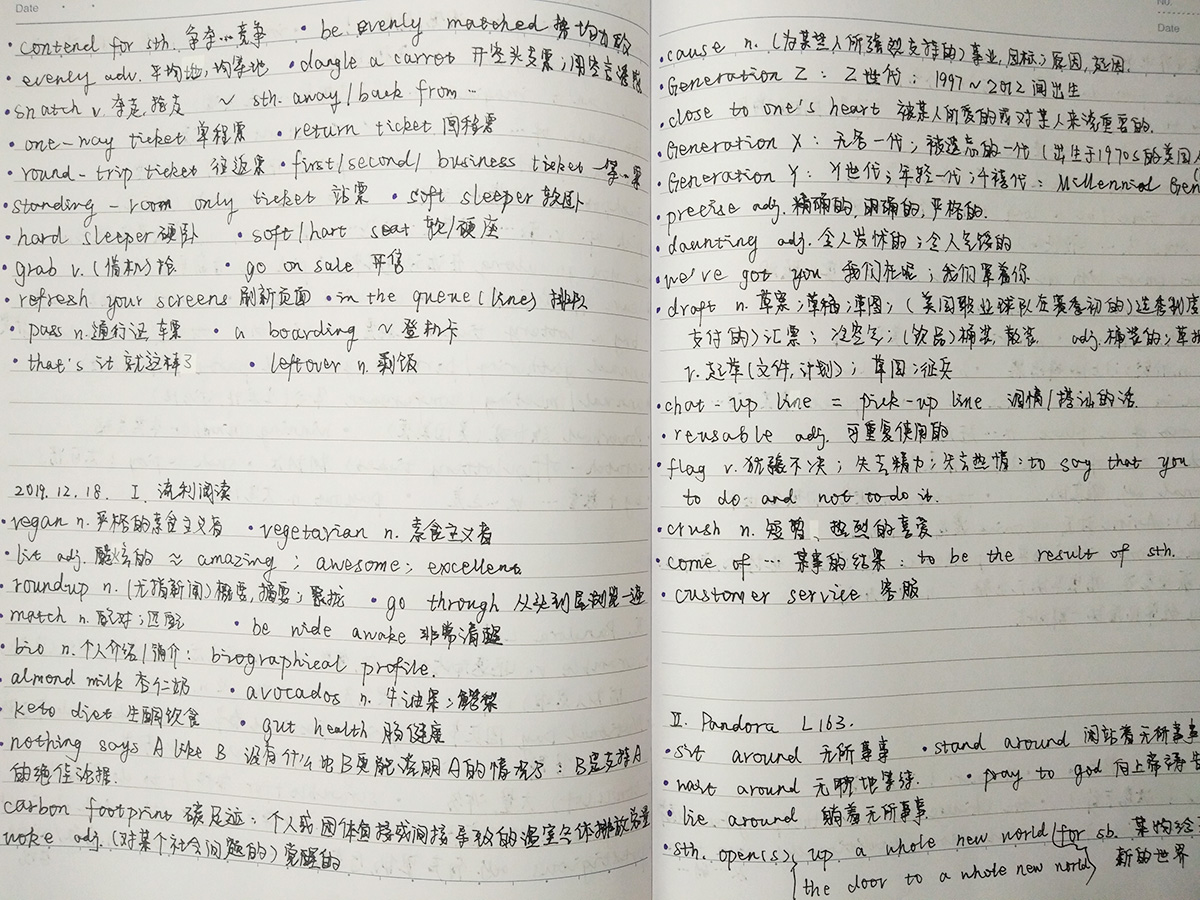 Date
• contend for sth. 争夺…竞争 • be evenly matched 势均力敌
• evenly adv. 平均地,均等地 • dangle a carrot 开空头支票;用空言
• snatch v. 夺走,抢走 ~ sth. away/back from …
• one-way ticket 单程票 • return ticket 回程票
• round-trip ticket 往返票 • first/second/business ticket 一等…票
• standing-room only ticket 站票 • soft sleeper 软卧
• hard sleeper 硬卧 • soft/hart seat 软/硬座
• grab v.(借机)抢 • go on sale 开售
• refresh your screens 刷新页面 • in the queue(line) 排队
• pass n.通行证 车票 • a boarding ~ 登机卡
• that's it 就这样了 • leftover n. 剩饭
2019.12.18. I. 流利阅读
• vegan n.严格的素食主义者 • vegetarian n. 素食主义者
• lit adj. 酷炫的 ≈ amazing; awesome; excellent.
• roundup n.(尤指新闻)概要,摘要;聚拢 • go through 从头到尾
• match n.配对;匹配 • be wide awake 非常清醒
• bio n.个人介绍/简介: biographical profile.
• almond milk 杏仁奶 • avocados n. 牛油果;
• keto diet 生酮饮食 • gut health 肠健康
• nothing says A like B 没有什么比B更能说明A的情况了:B是支持A
的绝佳论据.
carbon footprint 碳足迹:个人或团体直接或间接导致的温室气体排放总量
woke adj.(对某个社会问题的)觉醒的
No.
Date
• cause n.(为某些人所强烈支持的)事业,目标;原因,起因.
• Generation Z: Z世代: 1997~2012间出生
• close to one's heart 被某人所爱的或对某人来说重要的.
• Generation X: 无名一代;被遗忘的一代(出生于1970s的美国人
• Generation Y: Y世代;年轻一代;千禧代: Millennial Gen
• precise adj.精确的,明确的,严格的.
• daunting adj. 令人发怵的;令人气馁的
• we've got you 我们在呢;我们罩着你
• draft n.草票;草稿;草图;(美国职业球队在赛季初的)选秀制度
支付的)汇票;冷空气;(饮品)桶装,散装 adj.桶装的;草拟
v.起草(文件,计划);草图;征兵
• chat-up line = pick-up line 调情/搭讪的话.
• reusable adj. 可重复使用的
• flag v. 犹豫不决;失去精力;失去热情: to say that you
to do and not to do it.
• crush n.短暂、热烈的喜爱
• come of … 某事的结果: to be the result of sth.
• customer service 客服
II. Pandora L163.
• sit around 无所事事 • stand around 闲站着无所事事
• wait around 无聊地等待. • pray to god 向上帝祷告
• lie around 躺着无所事事
• sth. open(s) up a whole new world (for sb. 某物给
the door to a whole new world 新的世界